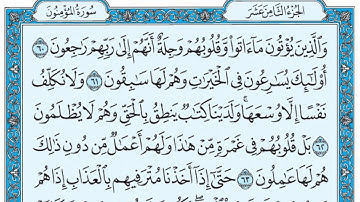 الجزء الثامن عشر
سورة المؤمنون
وَٱلَّذِينَ يُؤْتُونَ مَآ ءَاتَوا۟ وَّقُلُوبُهُمْ وَجِلَةٌ أَنَّهُمْ إِلَىٰ رَبِّهِمْ رَٰجِعُونَ ٦٠
أُو۟لَٰٓئِكَ يُسَٰرِعُونَ فِى ٱلْخَيْرَٰتِ وَهُمْ لَهَا سَٰبِقُونَ ٦١ وَلَا نُكَلِّفُ
نَفْسًا إِلَّا وُسْعَهَا ۖ وَلَدَيْنَا كِتَٰبٌ يَنطِقُ بِٱلْحَقِّ ۚ وَهُمْ لَا يُظْلَمُونَ
٦٢ بَلْ قُلُوبُهُمْ فِى غَمْرَةٍ مِّنْ هَٰذَا وَلَهُمْ أَعْمَٰلٌ مِّن دُونِ ذَٰلِكَ
هُمْ لَهَا عَٰمِلُونَ ٦٣ حَتَّىٰٓ إِذَآ أَخَذْنَا مُتْرَفِيهِم بِٱلْعَذَابِ إِذَا هُمْ